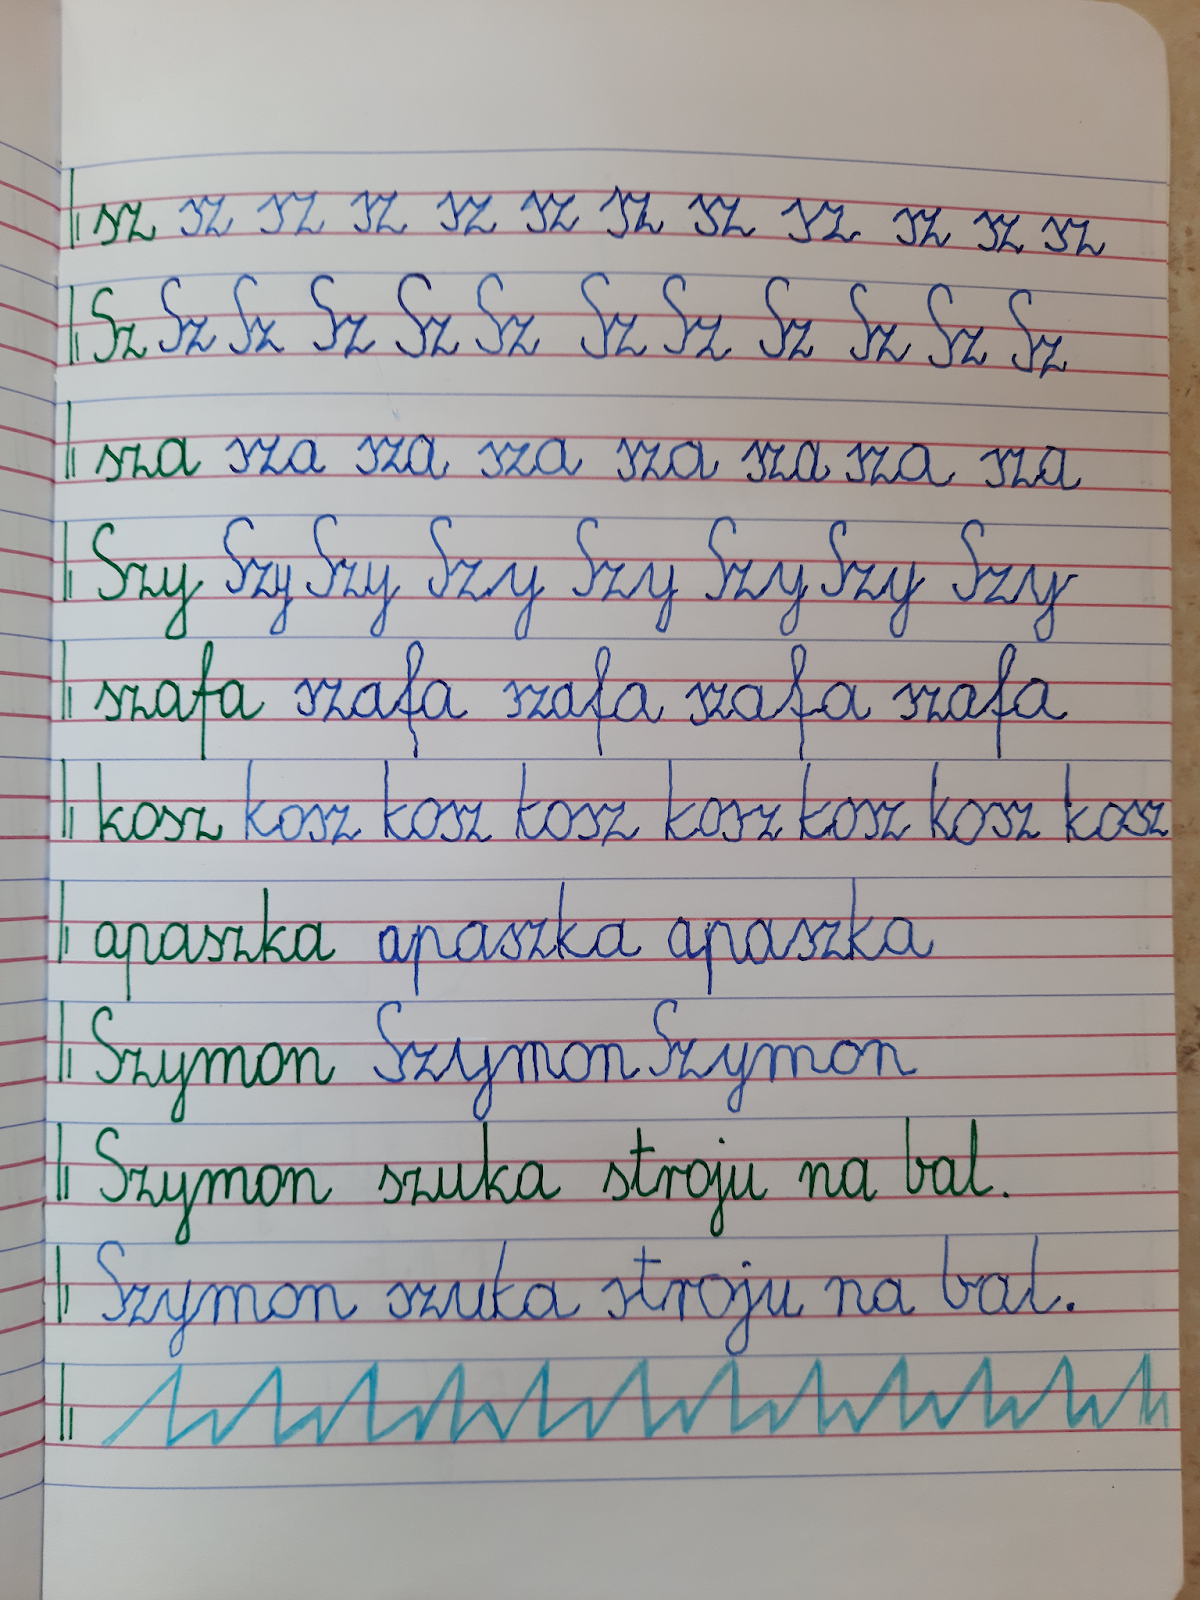 sz sz sz sz sz sz sz sz sz sz sz sz
Sz Sz Sz Sz Sz Sz Sz Sz Sz Sz Sz Sz
sza sza sza sza sza sza sza sza
Szy Szy Szy Szy Szy Szy Szy Szy
szafa szafa szafa szafa szafa
kosz kosz kosz kosz kosz kosz kosz kosz
apaszka apaszka apaszka
Szymon Szymon Szymon
Szymon szuka stroju na bal.
Szymon szuka stroju na bal.